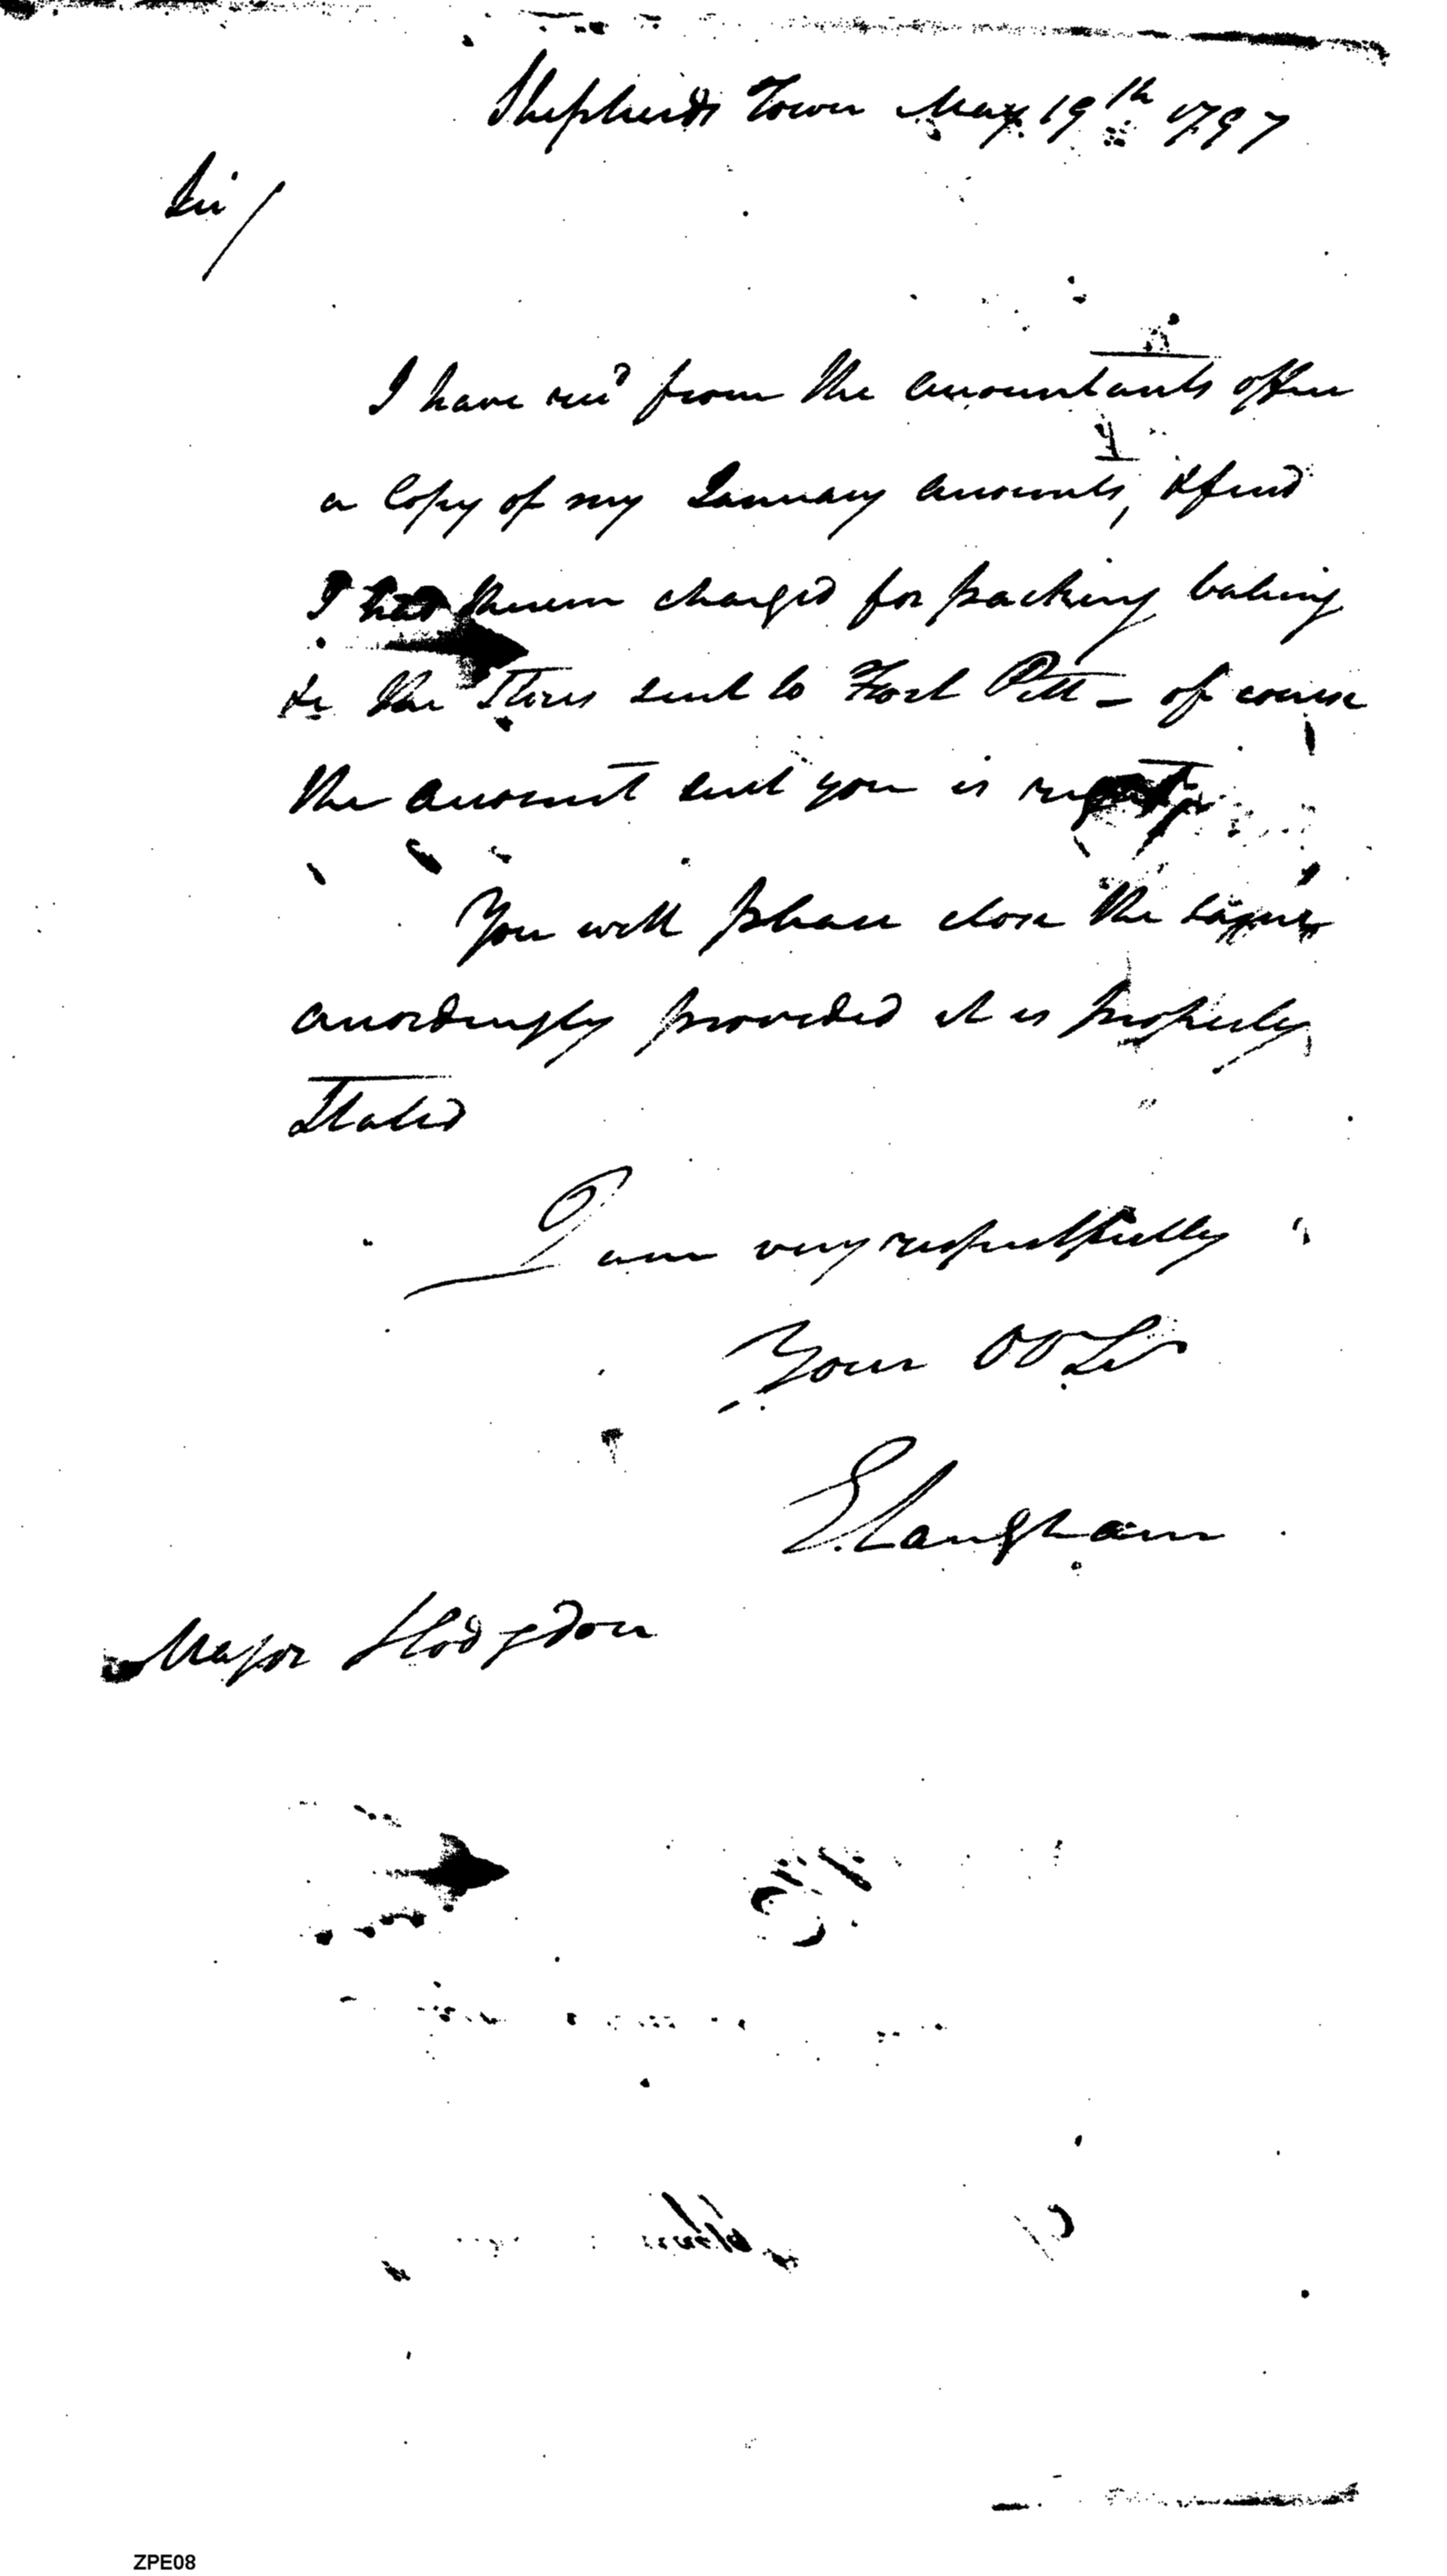 Shepherds Town May 19th 1797
Sir/
I have recd from the accountants office
a Copy of my January accounts, & find
I had therein charged for packing baling
&c the Stores sent to Fort Pitt - of course
the account sent you is right
You will please close the same
accordingly provided it is properly
Stated
I am very respectfully
Your OSt
E. Langham
Major Hodgdon
ZPE08